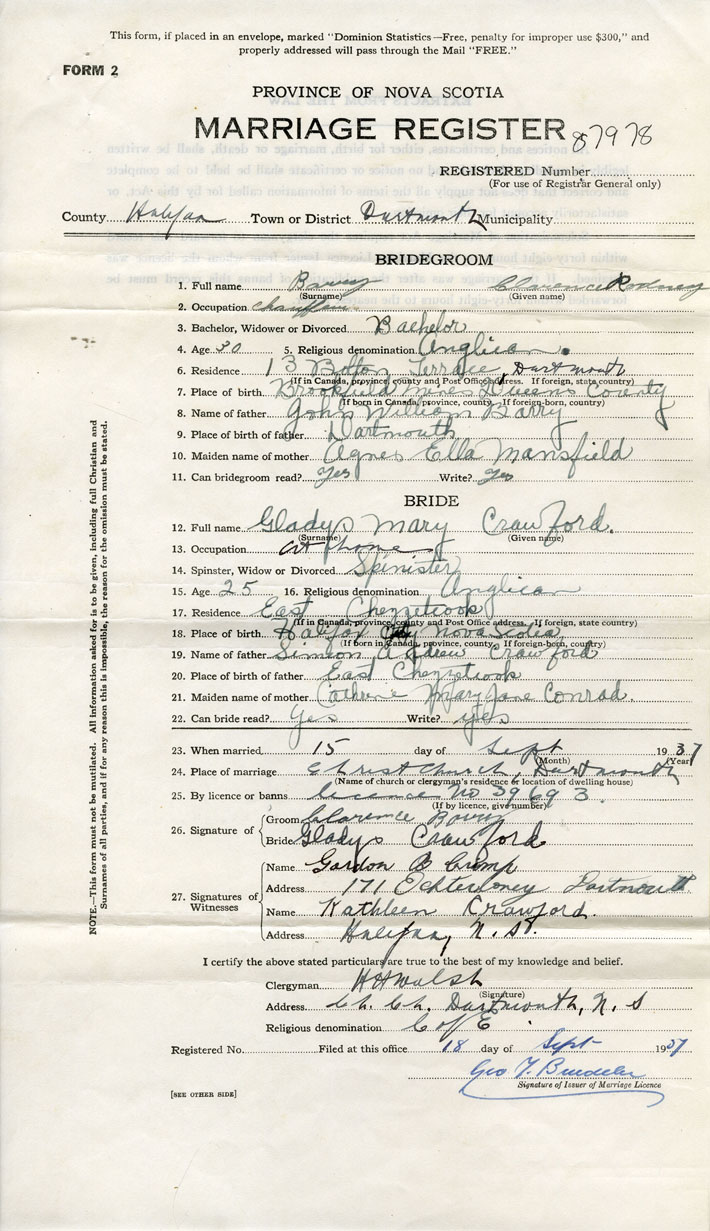 This form, if placed in an envelope, marked "Dominion Statistics—Free, penalty for improper use $300," and
properly addressed will pass through the Mail "FREE."
FORM 2
PROVINCE OF NOVA SCOTIA
MARRIAGE REGISTER 87978
REGISTERED Number
(For use of Registrar General only)
County Halifax Town or District Dartmouth Municipality
BRIDEGROOM
1. Full name Barry Clarence Rodney
(Surname) (Given name)
2. Occupation chauffeur
3. Bachelor, Widower or Divorced Bachelor
4. Age 30 5. Religious denomination Anglican
6. Residence 13 Bolton Terrace, Dartmouth
(If in Canada, province, county and Post Office address. If foreign, state country)
7. Place of birth Brookfield Mines Queens County
(If born in Canada, province, county. If foreign-born, county)
8. Name of father John William Barry
9. Place of birth of father Dartmouth
10. Maiden name of mother Agnes Ella Mansfield
11. Can bridegroom read? yes Write? yes
BRIDE
12. Full name Gladys Mary Crawford.
(Surname) (Given name)
13. Occupation at home
14. Spinster, Widow or Divorced Spinister
15. Age 25 16. Religious denomination Anglican
17. Residence East Chezzetcook
(If in Canada, province, county and Post Office address. If foreign, state country)
18. Place of birth Halifax City Nova Scotia
(If born in Canada, province, county. If foreign-born, county)
19. Name of father Simeon Andrew Crawford
20. Place of birth of father East Chezzetcook
21. Maiden name of mother Cathrene Mary Jane Conrad.
22. Can bride read? Yes Write? yes
23. When married 15 day of Sept 1937
(Month) (Year)
24. Place of marriage Christ Church, Dartmouth
(Name of church or clergyman's residence or location of dwelling house)
25. By licence or banns licence No 39693.
(If by licence, give number)
26. Signature of Groom Clarence Barry
Bride Gladys Crawford
27. Signatures of Witnesses
Name Gordon B Crimp
Address 171 Dartmouth
Name Kathleen Crawford.
Address Halifax, N. S.
I certify the above stated particulars are true to the best of my knowledge and belief.
Clergyman H H Walsh
(Signature)
Address Ch. Ch. Dartmouth, N. S
Religious denomination C of E
Registered No. Filed at this office 18 day of Sept 1937
Geo
Signature of Issuer of Marriage Licence
[SEE OTHER SIDE]
NOTE.—This form must not be mutilated. All information asked for is to be given, including full Christian and
Surnames of all parties, and if for any reason this is impossible, the reason for the omission must be stated.